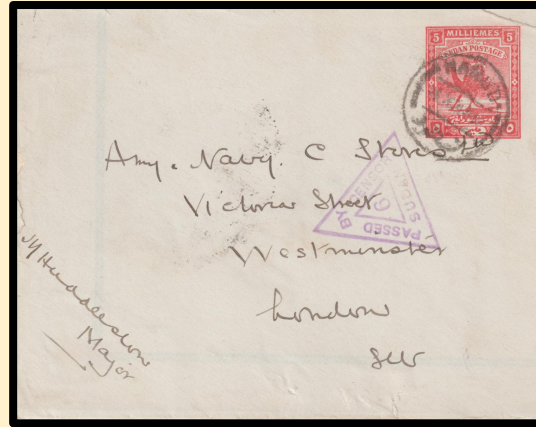 5 MILLIEMES 5
SUDAN POSTAGE
Army & Navy. C Stores
Victoria Street
Westminster
London
SW
PASSED BY CENSOR
SUDAN
6
Huddleston
Major